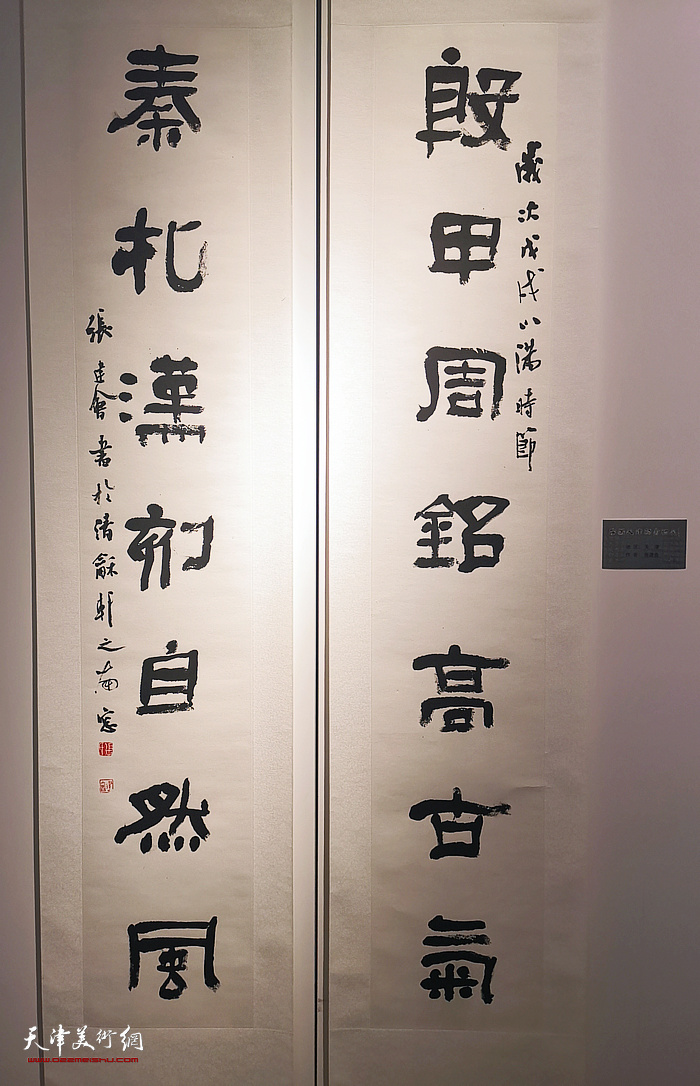 殷甲周銘高古氣
歲次戊戌小滿時節
秦札漢刻自然風
張建會書於清龢軒之南窓
天津美術網
www.oeemeishu.com